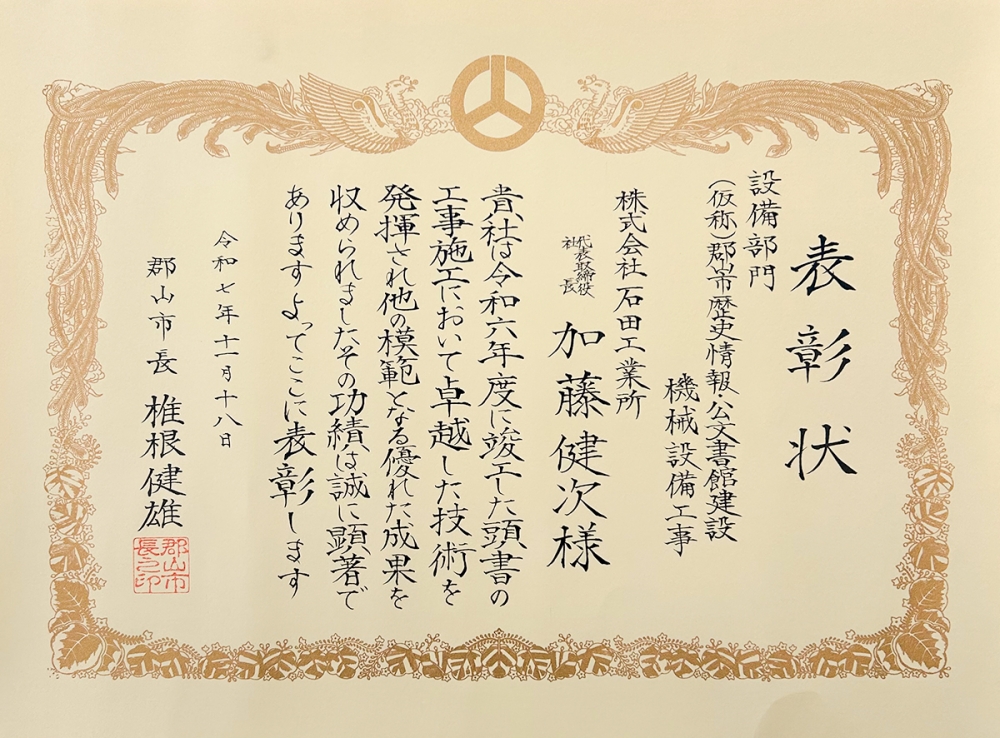 表彰状
設備部門
(仮称)郡山市歴史情報・公文書館建設
機械設備工事
株式会社石田工業所
代表取締役
社長
加藤健次様
貴社は令和六年度に竣工した頭書の
工事施工において卓越した技術を
発揮され他の模範となる優れた成果を
収められましたその功績は誠に顕著で
ありますよってここに表彰します
令和七年十一月十八日
郡山市長 椎根健雄
郡山市
長之印